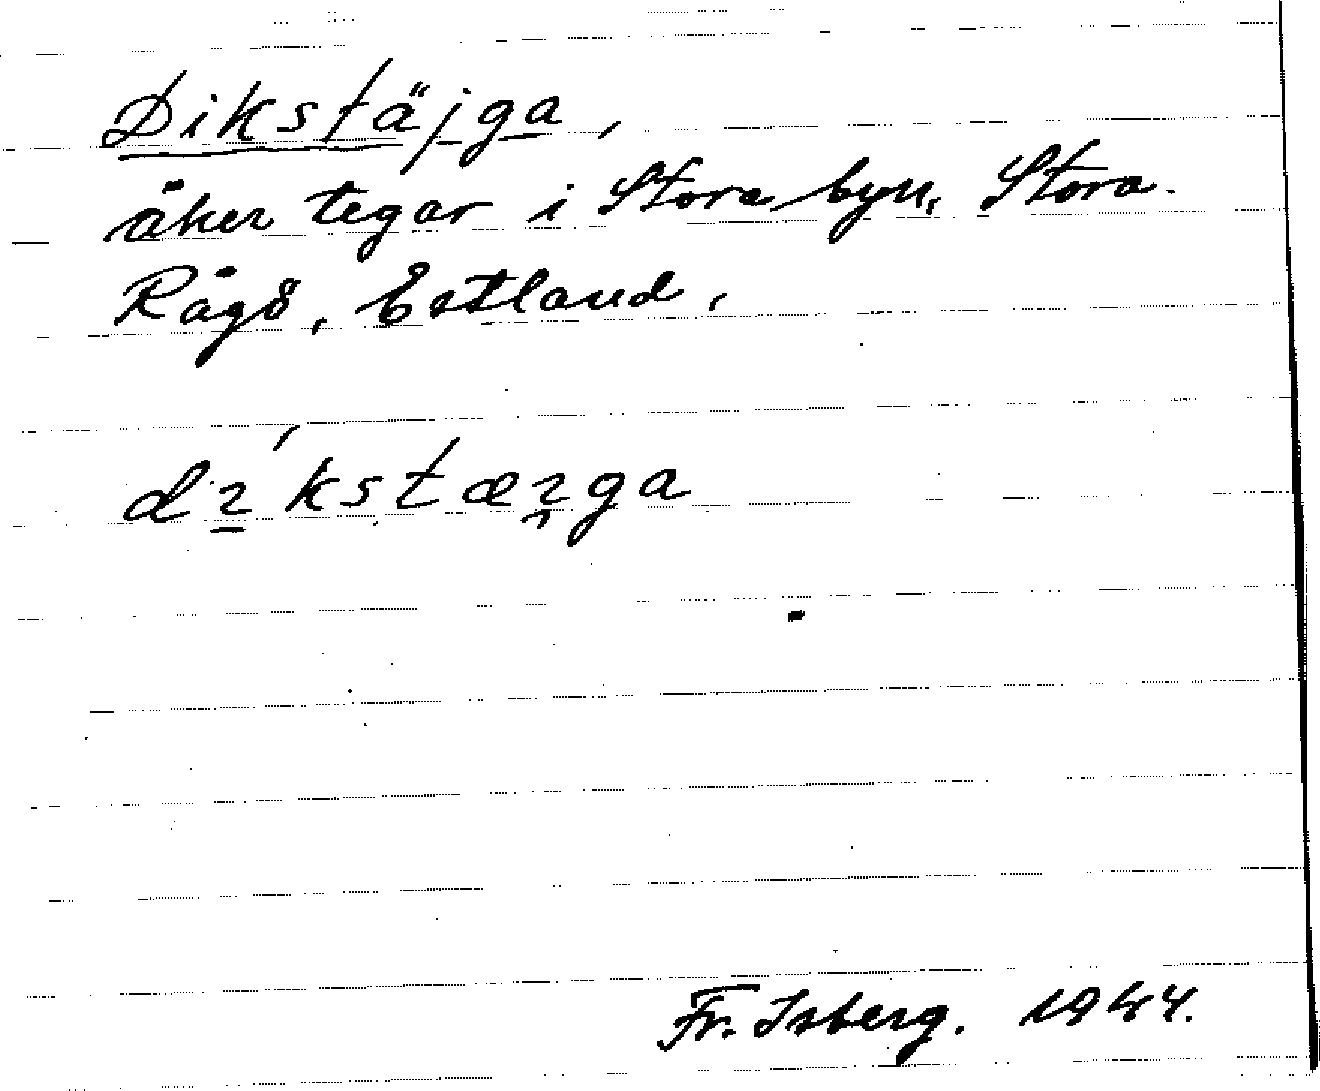 Dikstäjga,
åker tegar i Stora byn, Stora
Rågö, Estland.
dı̱́kstæı̯ga
Fr. Isberg. 1944.